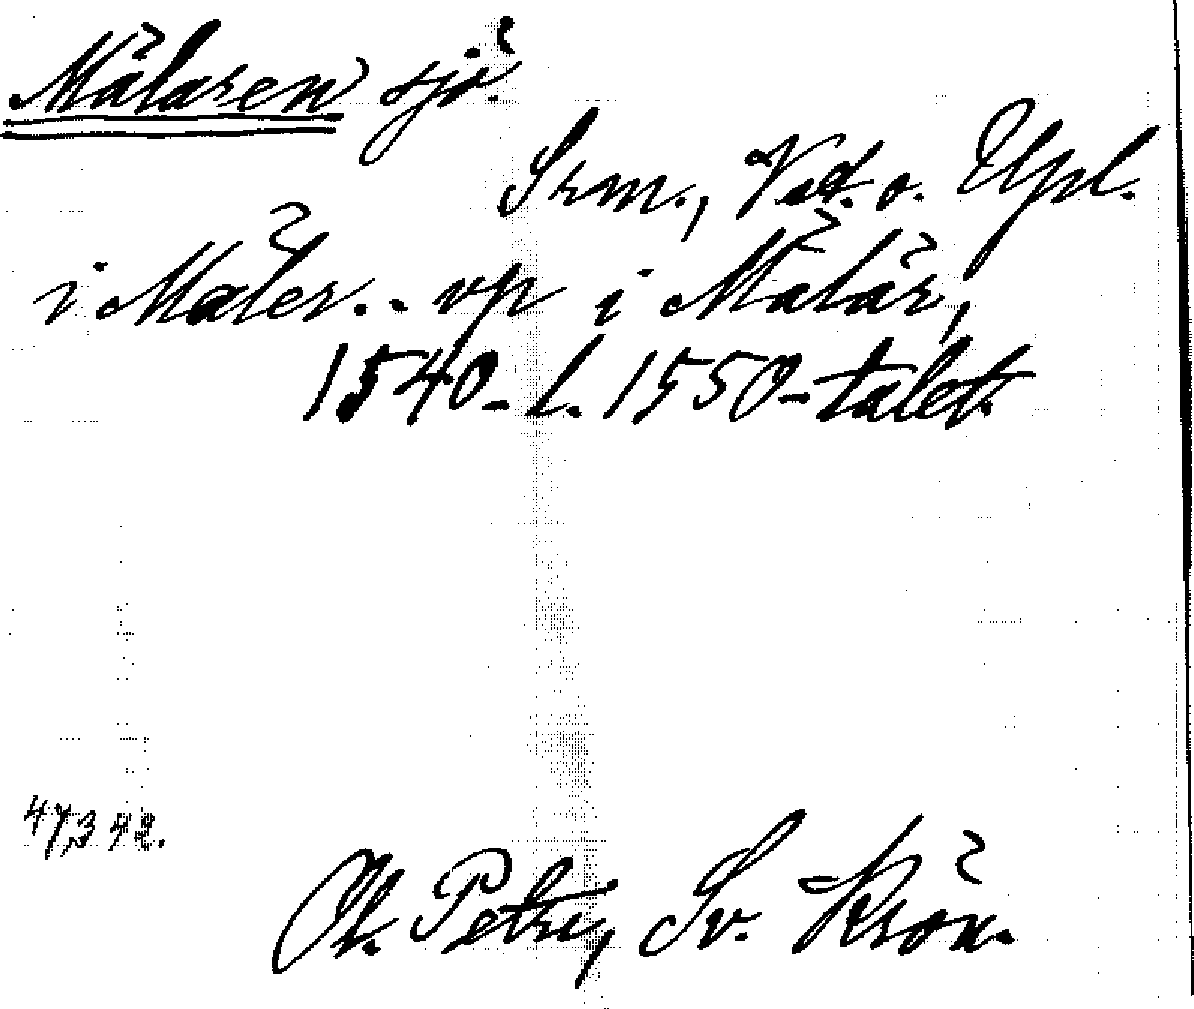 Mälaren sjö.
Srm., Vstm. o. Upl.
i Mäler.. vp i Mälär,
1540- l. 1550-talet.
47,342.
Ol. Petri, Sv. Krön.